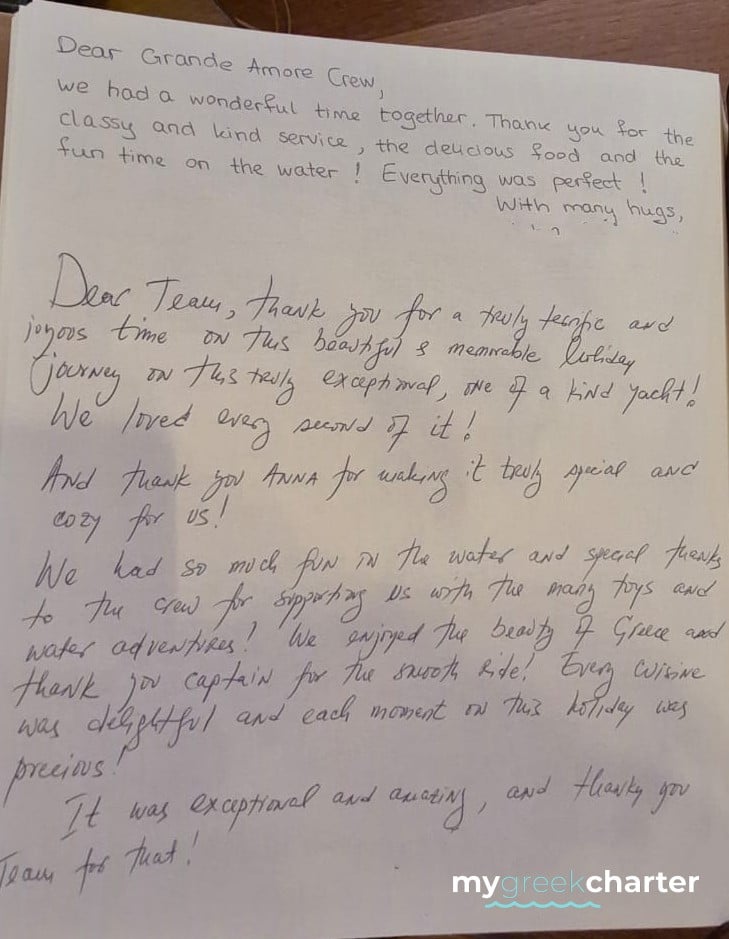 Dear Grande Amore Crew,
we had a wonderful time together. Thank you for the
classy and kind service, the delicious food and the
fun time on the water! Everything was perfect!
With many hugs,
Dear Team, thank you for a truly terrific and
joyous time on this beautiful & memorable holiday
journey on this truly exceptional, one of a kind yacht!
We loved every second of it!
And thank you ANNA for making it truly special and
cozy for us!
We had so much fun in the water and special thanks
to the crew for supporting us with the many toys and
water adventures! We enjoyed the beauty of Greece and
thank you captain for the smooth ride! Every cuisine
was delightful and each moment on this holiday was
precious!
It was exceptional and amazing, and thank you
Team for that!
mygreekcharter